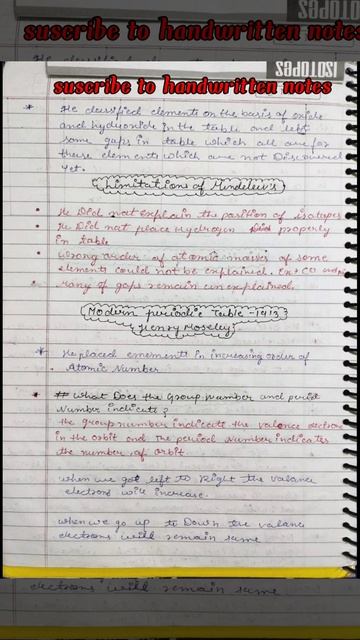 suscribe to handwritten notes
ISOTOPES
suscribe to handwritten notes
* He classified elements on the basis of oxide
and hydroxide in the table and left
some gaps in table which all are for
these elements which are not Discovered
yet.
Limitations of Mindeleiv's
• He Did not explain the position of isotopes
• He Did not place Hydrogen properly
in table
• wrong order of atomic masses of some
elements could not be explained. Ex:- CO
• Many of gaps remain unexplained.
Modern periodic Table - 1913
Henry Moseley
* He placed elements in increasing order of
Atomic Number.
* ## What Does the Group Number and period
Number indicate?
the group number indicate the valance electrons
in the orbit and the period Number indicates
the number of orbit
when we got left to Right the valance
electrons will increase.
when we go up to Down the valance
electrons will remain same
electrons will remain same